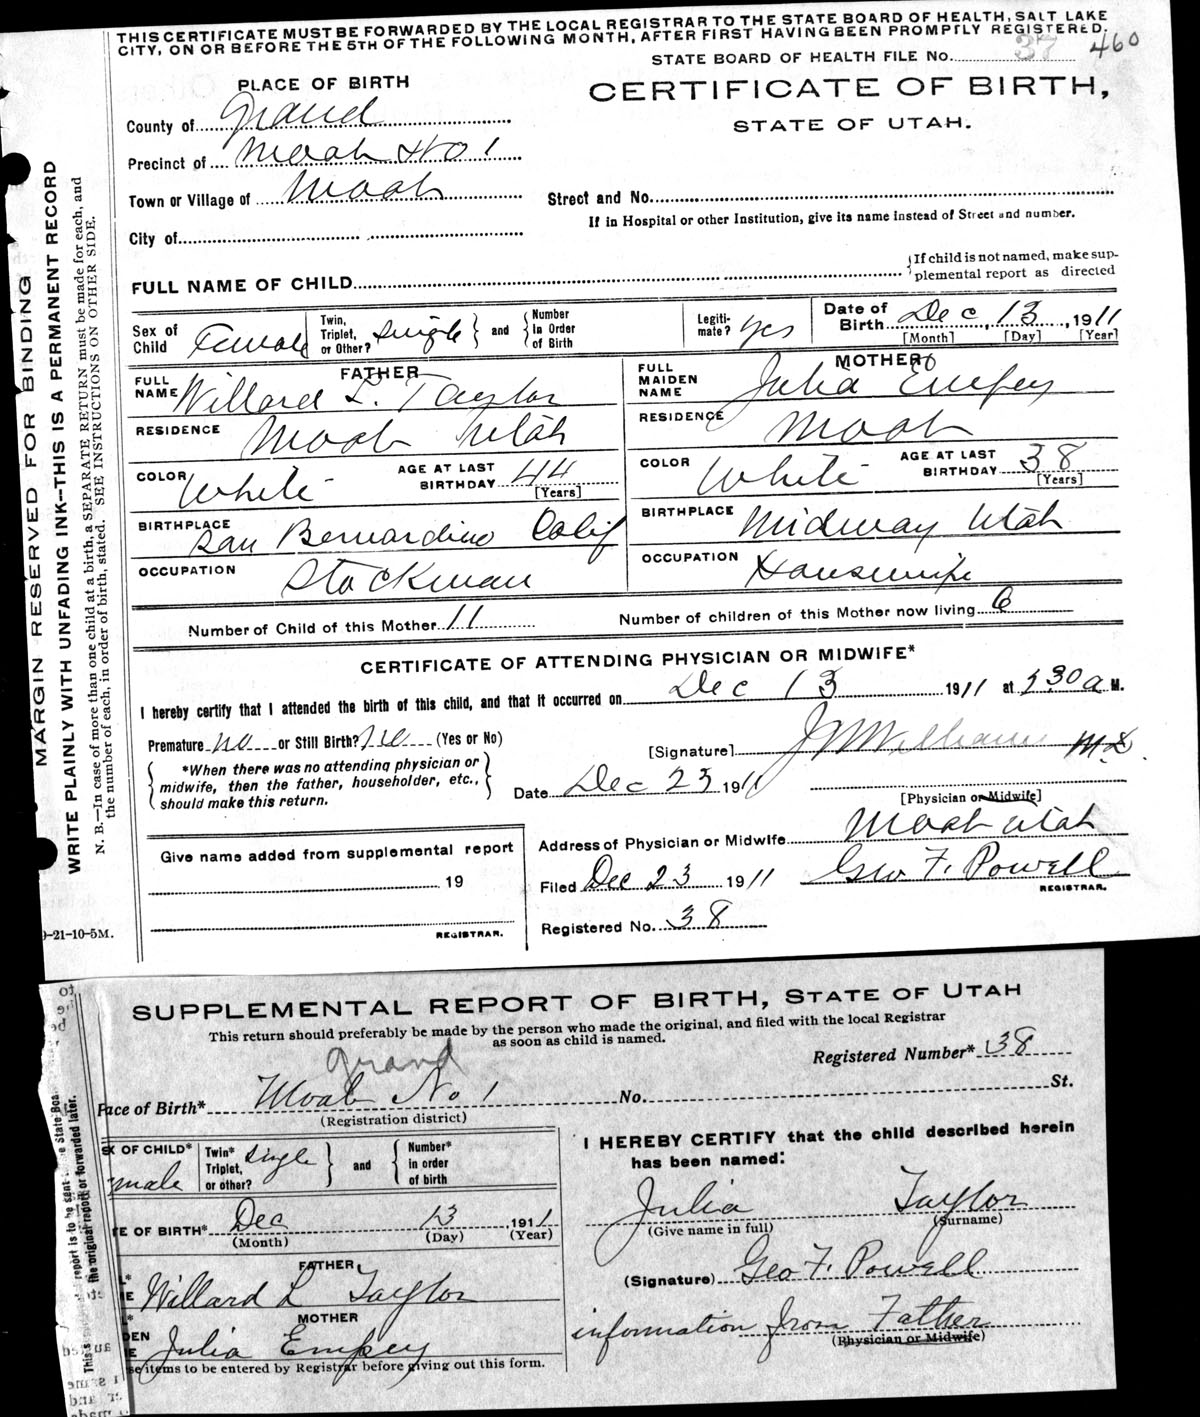 THIS CERTIFICATE MUST BE FORWARDED BY THE LOCAL REGISTRAR TO THE STATE BOARD OF HEALTH, SALT LAKE
CITY, ON OR BEFORE THE 5TH OF THE FOLLOWING MONTH, AFTER FIRST HAVING BEEN PROMPTLY REGISTERED.
STATE BOARD OF HEALTH FILE No. 37 460
PLACE OF BIRTH
CERTIFICATE OF BIRTH,
STATE OF UTAH.
County of Grand
Precinct of Moab No 1
Town or Village of Moab
Street and No.
If in Hospital or other Institution, give its name instead of Street and number.
City of
FULL NAME OF CHILD
{If child is not named, make sup-
plemental report as directed
Sex of Child Female
Twin, Triplet, or Other? Single } and { Number In Order of Birth
Legiti-mate? Yes
Date of Birth Dec, 13, 1911
[Month] [Day] [Year]
FATHER
FULL NAME Willard L. Taylor
RESIDENCE Moab Utah
COLOR White AGE AT LAST BIRTHDAY 44 [Years]
BIRTHPLACE San Bernardino Calif
OCCUPATION Stockman
MOTHER
FULL MAIDEN NAME Julia Empey
RESIDENCE Moab
COLOR White AGE AT LAST BIRTHDAY 38 [Years]
BIRTHPLACE Midway Utah
OCCUPATION Housewife
Number of Child of this Mother 11
Number of children of this Mother now living 6
CERTIFICATE OF ATTENDING PHYSICIAN OR MIDWIFE*
I hereby certify that I attended the birth of this child, and that it occurred on Dec 13 1911 at 30 a M.
Premature no or Still Birth? no (Yes or No)
[Signature] J W Williams M.D.
{ *When there was no attending physician or
midwife, then the father, householder, etc.,
should make this return. }
Date Dec 23 1911
[Physician or Midwife]
Address of Physician or Midwife Moab Utah
Give name added from supplemental report
19
REGISTRAR.
Filed Dec 23 1911 Geo. F. Powell
REGISTRAR.
Registered No. 38
9-21-10-5M.
MARGIN RESERVED FOR BINDING
WRITE PLAINLY WITH UNFADING INK—THIS IS A PERMANENT RECORD
N. B.—In case of more than one child at a birth, a SEPARATE RETURN must be made for each, and
the number of each, in order of birth, stated. SEE INSTRUCTIONS ON OTHER SIDE.
SUPPLEMENTAL REPORT OF BIRTH, STATE OF UTAH
This return should preferably be made by the person who made the original, and filed with the local Registrar
as soon as child is named.
Registered Number* 38
Grand
Place of Birth* Moab No 1 No. St.
(Registration district)
SEX OF CHILD* male
Twin* Triplet, or other? Single } and { Number* in order of birth
DATE OF BIRTH* Dec 13 1911
(Month) (Day) (Year)
FATHER
Willard L Taylor
MOTHER
Julia Empey
se items to be entered by Registrar before giving out this form.
I HEREBY CERTIFY that the child described herein
has been named:
Julia Taylor
(Give name in full) (Surname)
(Signature) Geo F. Powell
information from Father
(Physician or Midwife)
report is to be sent to the State Boa
the original report or forwarded later.